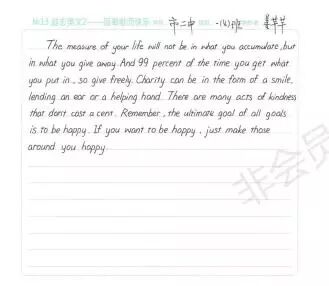 No.13 励志美文2——
市二中 一(4)班
The measure of your life will not be in what you accumulate, but
in what you give away. And 99 percent of the time you get what
you put in, so give freely. Charity can be in the form of a smile.
lending an ear or a helping hand. There are many acts of kindness
that don't cost a cent. Remember, the ultimate goal of all goals
is to be happy. If you want to be happy, just make those
around you happy
非会员